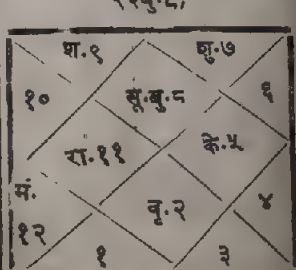 श.९ शु.७
१० सू.बु.८ ६
रा.११ के.५
मं.
१२ वृ.२ ४
१ ३